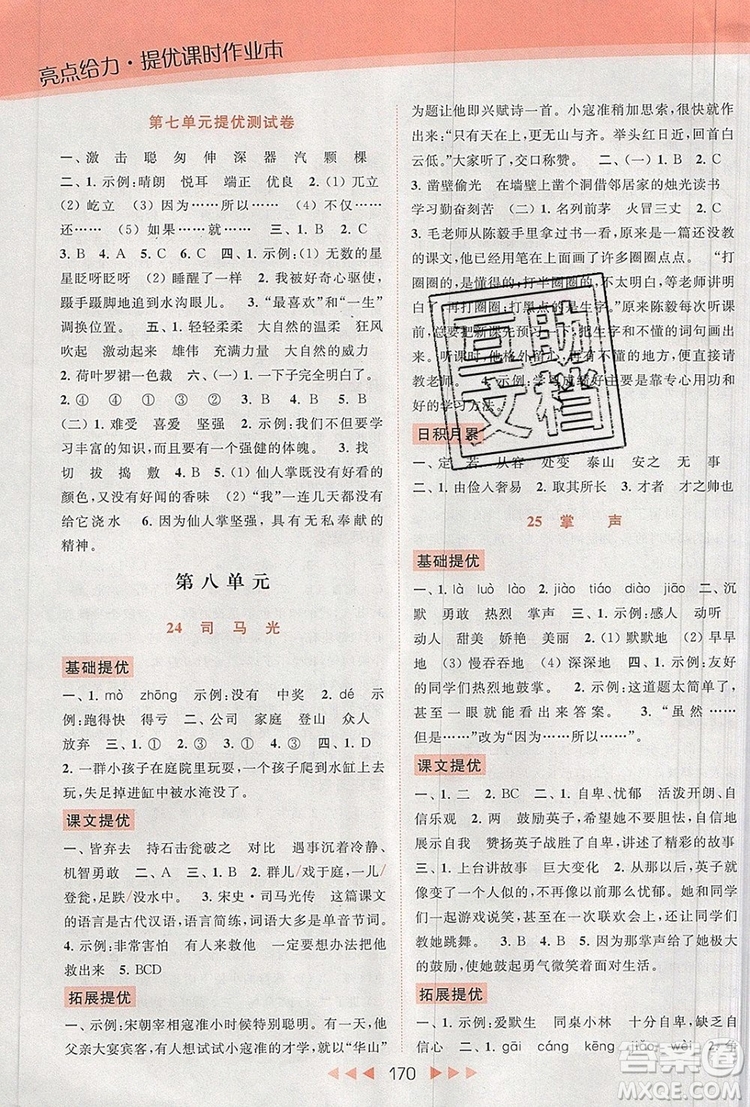 亮点给力·提优课时作业本
第七单元提优测试卷
一、激 击 聪 匆 伸 深 器 汽 颗 棵
二、1. 示例:晴朗 悦耳 端正 优良 2. (1) 兀立
(2) 屹立 (3) 因为……所以…… (4) 不仅……
还…… (5) 如果……就…… 三、1. B 2. C
3. B 4. A 5. C 四、1. 示例:(1) 无数的星
星眨呀眨呀 (2) 睡醒了一样 2. 我被好奇心驱使,
蹑手蹑脚地追到水沟眼儿。 3. “最喜欢”和“一生”
调换位置。 五、1. 轻轻柔柔 大自然的温柔 狂风
吹起 激动 雄伟 充满力量 大自然的威力
2. 荷叶罗裙一色裁 (一) 1. 一下子完全明白了。
2. ④ ① ② ③ 3. ①
(二) 1. 难受 喜爱 坚强 2. 示例:我们要学
习丰富的知识,而且要有一个强健的体魄。 3. 找
切 拔 捣 敷 4. B 5. (1) 仙人掌既没有好看的
颜色,又没有好闻的香味 (2) “我”一连几天都没有
给它浇水 6. 因为仙人掌坚强、有无私奉献的
精神。
第八单元
24 司 马 光
基础提优
一、1. mò zhōng 示例:没有 中奖 2. dé 示
例:跑得快 得亏 二、公司 家庭 登山 众人
放弃 三、1. ① 2. ① 3. ② 四、1. D
2. 一群小孩子在庭院里玩耍,一个小孩子爬到水缸上
玩,失足掉进缸中被水淹没了。
课文提优
一、皆弃去 持石击瓮破之 对比 遇事沉着冷静、
机智勇敢 二、1. B 2. 群儿/戏于庭,一儿/
登瓮,足跌/没水中。 3. 宋史·司马光传 这篇课文
的语言是古代汉语,语言简练,部分词语是单音节词。
4. 示例:非常害怕 有人叫来大人帮忙 不需要,
因为这样才更突出主要人物 5. BCD
拓展提优
一、1. 示例:宋朝宰相寇准小时候特别聪明。有一天,他
父亲大宴宾客,有人想试试小寇准的才学,就以“华山”
为题让他即兴赋诗一首。小寇准稍作思索,就创作
出来:“只有天在上,更无山与齐。举头红日近,回首白
云低。”大家听了,交口称赞。 二、(一) 1. B 2. B
3. 凿壁偷光 在墙壁上凿洞借邻居家的烛光读书
学习勤奋刻苦 (二) 1. 名列前茅 火冒三丈 2. B
3. 毛老师从陈毅手里拿过书一看,发现他在没有教过
的课文上用笔在上面画了许多圈圈点点。 4. “打
圈圈的,是懂得的,打半圈圈的,不太明白,等老师讲明白
了,再打圈圈;打黑点的是生字。”原来陈毅每次听课
前,总要把新课先预习一下,把生字和不懂的地方画出
来。听课时,他格外留心,若还有不懂的地方,便请
教老师。 5. C 6. 示例:学习成绩好主要是靠专心用功和
好的学习方法。
日积月累
一、定 若 从容 处变 泰山 安之 无 事
二、1. 由俭入奢易 2. 取其所长 3. 才者 才之帅也
25 掌 声
基础提优
一、1. là luò lào 2. jiào tiáo diào jiāo 二、沉
默 勇敢 快步 掌声 三、1. 示例:感人 动听
动人 甜美 娇艳 美丽 2. (1) 默默地 (2) 早早
地 (3) 慢吞吞地 四、1. 示例:教室里
的同学们热烈地鼓掌。 2. 示例:这道题太简单了,
我们一眼就能看出来答案。 3. “虽然……
但是……”改为“因为……所以……”。
课文提优
一、1. 二 2. BC 3. 自卑、忧郁 活泼开朗、自
信乐观 2. 两 鼓励英子,希望她不要胆怯,自信地
展示自我 赞扬英子战胜了自己,讲述了精彩的故事
三、1. 上台讲故事 巨大变化 3. 最后,英子不再像以
前那样忧郁。她开始和同学们交谈、游戏。她和她们一
起游戏说笑,主动参加她们的各种活动,甚至让同学们
教她跳舞。 2. C 3. 因为同学们的掌声给了她极大
的鼓励,使她鼓起勇气微笑着面对生活。
拓展提优
一、1. 示例:爱默生 同桌小林 十分自卑,缺乏自
信心 二、1. gāi cáng kēng jiāo wèi 2.
170
互助文档
答案圈
MXQE.COM